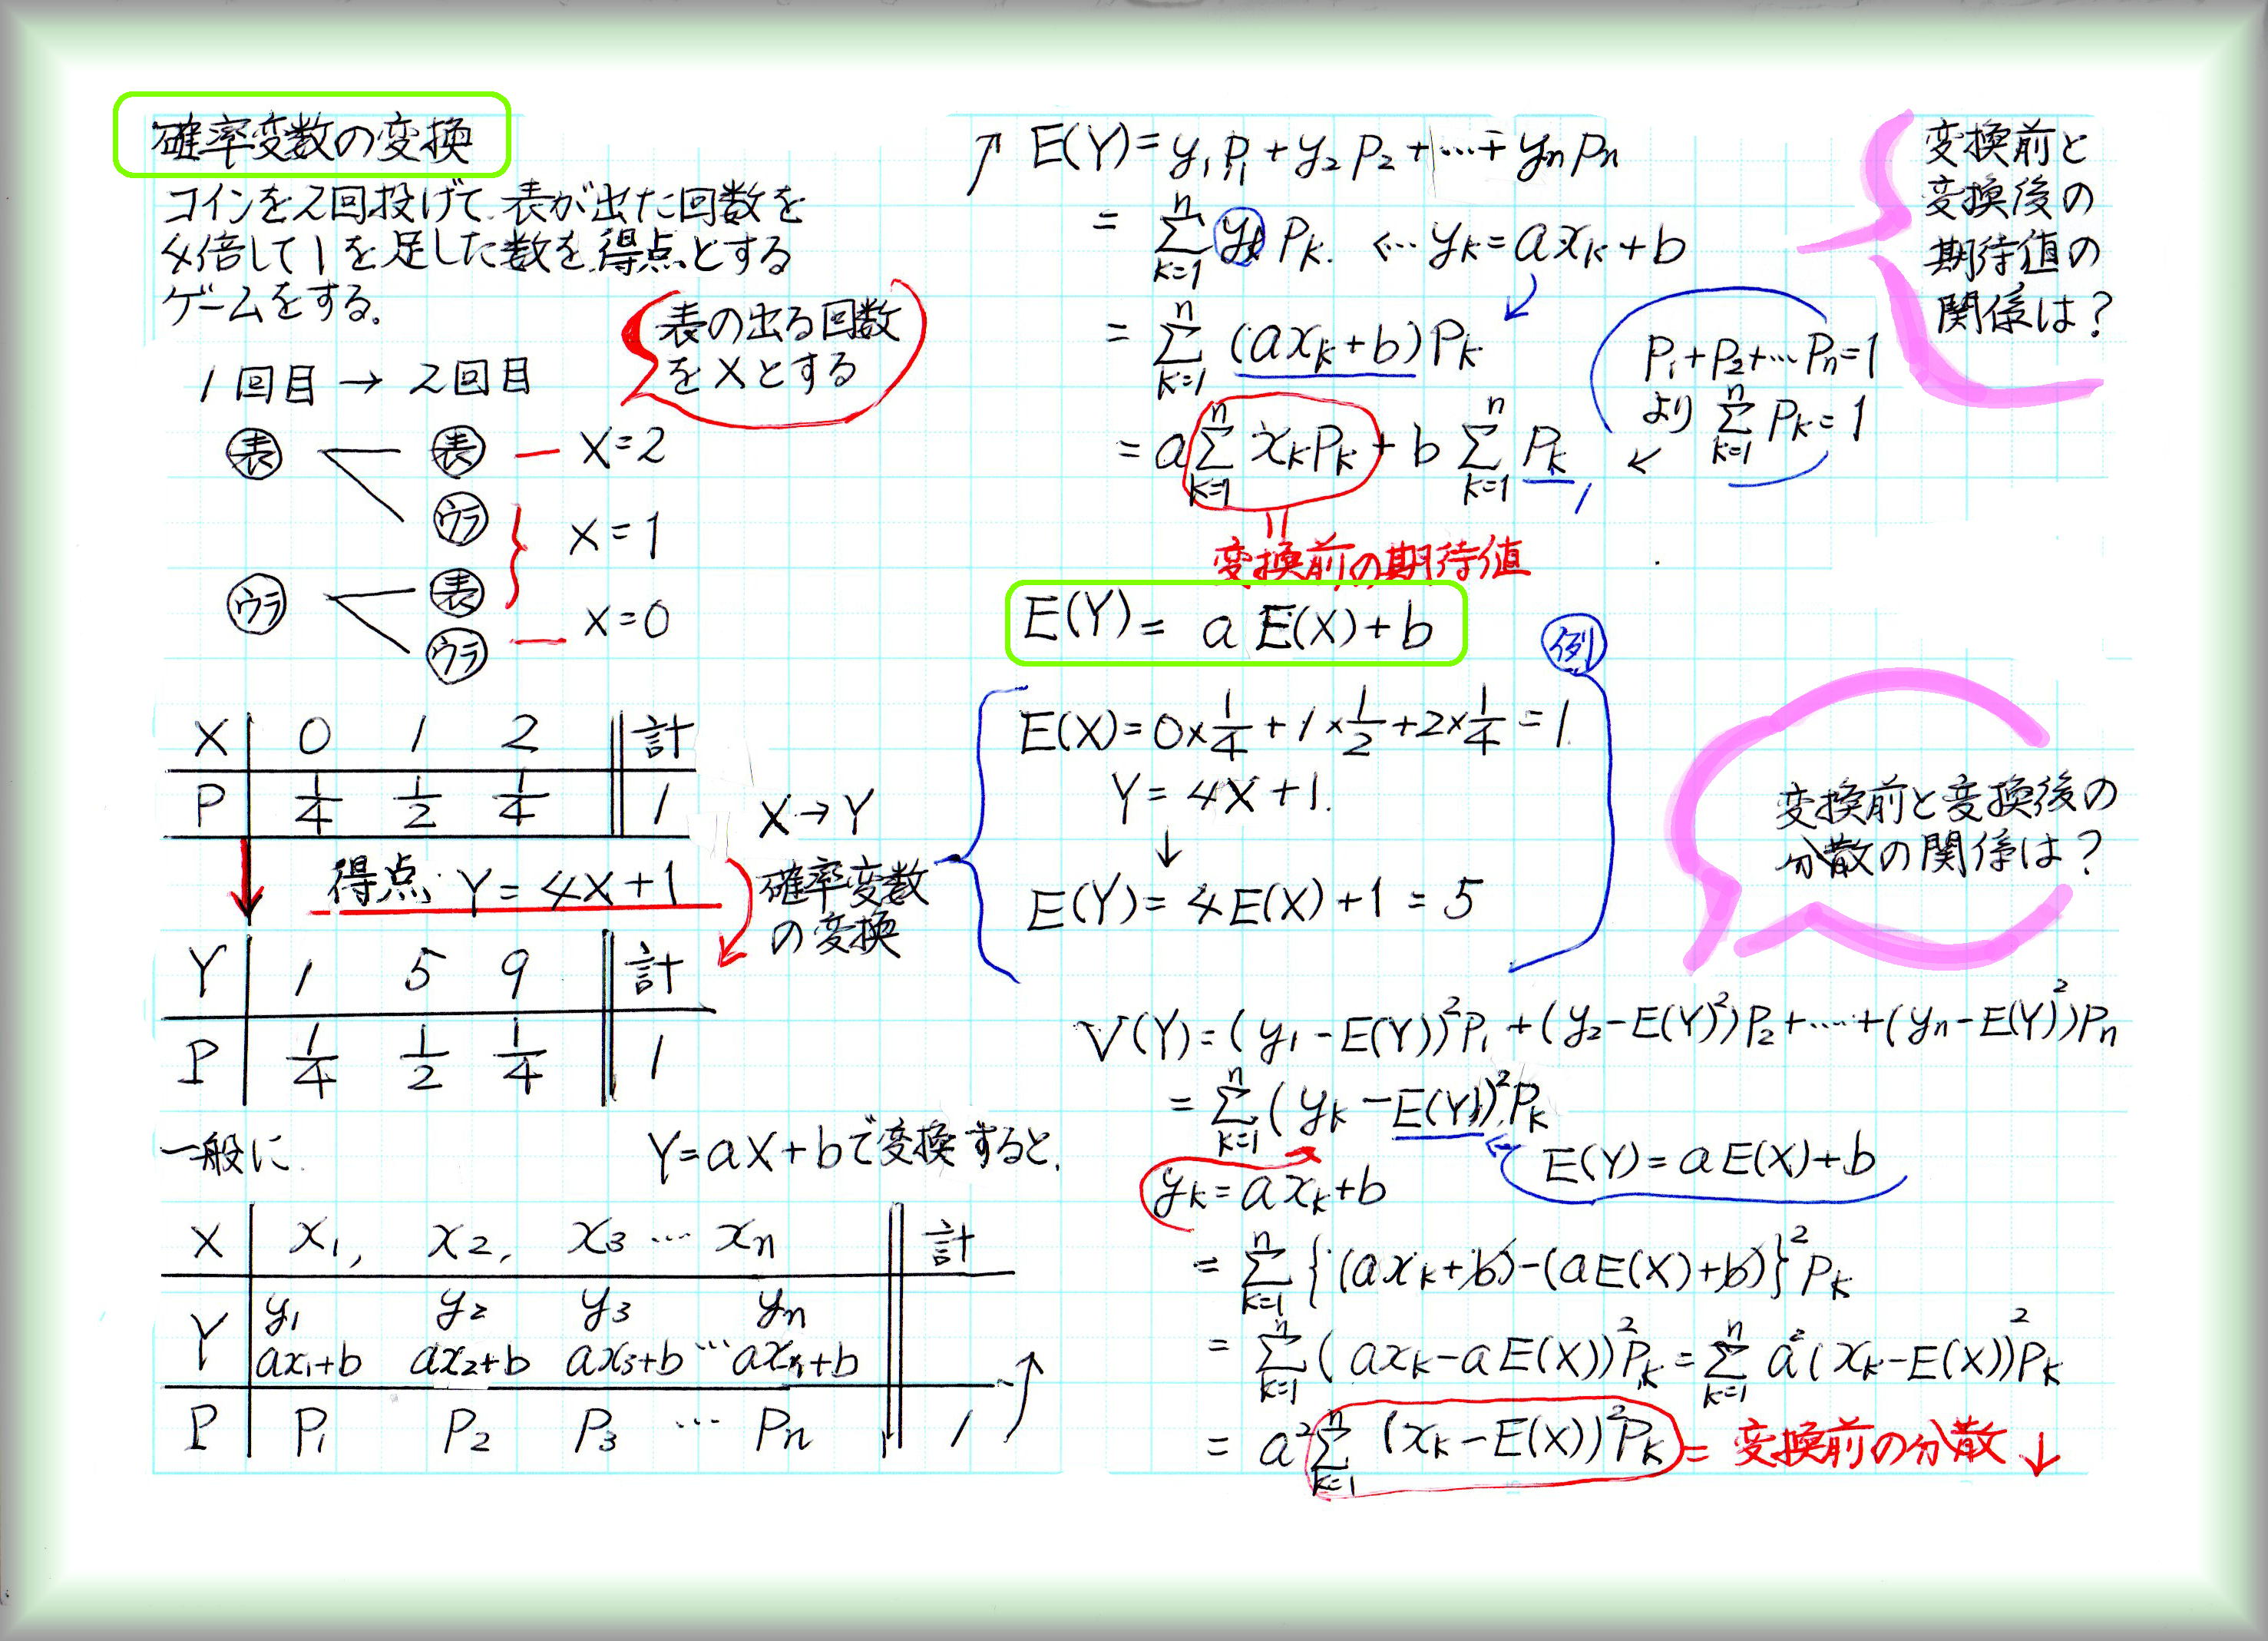 確率変数の変換
コインを2回投げて、表が出た回数を
4倍して1を足した数を得点とする
ゲームをする。
表の出る回数
をXとする
1回目 → 2回目
表 表 — X=2
ウラ X=1
ウラ 表
ウラ — X=0
X 0 1 2 計
P 1/4 1/2 1/4 1
得点 Y=4X+1
X→Y
確率変数
の変換
Y 1 5 9 計
P 1/4 1/2 1/4 1
一般に Y=aX+bで変換すると、
X x₁, x₂, x₃ … xₙ 計
Y y₁ y₂ y₃ yₙ
ax₁+b ax₂+b ax₃+b … axₙ+b
P P₁ P₂ P₃ … Pₙ 1
↗ E(Y)=y₁P₁+y₂P₂+…+yₙPₙ
= Σ[k=1,n] yₖPₖ ←… yₖ=axₖ+b
= Σ[k=1,n] (axₖ+b)Pₖ
= a Σ[k=1,n] xₖPₖ + b Σ[k=1,n] Pₖ
P₁+P₂+…Pₙ=1
より Σ[k=1,n] Pₖ=1
1
変換前の期待値
変換前と
変換後の
期待値の
関係は?
E(Y)= aE(X)+b
例
E(X)=0×1/4+1×1/2+2×1/4=1
Y=4X+1.
↓
E(Y)=4E(X)+1=5
変換前と変換後の
分散の関係は?
V(Y)=(y₁-E(Y))²P₁+(y₂-E(Y)²)P₂+……+(yₙ-E(Y)²)Pₙ
= Σ[k=1,n] (yₖ-E(Y))²Pₖ
E(Y)=aE(X)+b
yₖ=axₖ+b
= Σ[k=1,n] {(axₖ+b)-(aE(X)+b)}²Pₖ
= Σ[k=1,n] (axₖ-aE(X))²Pₖ = Σ[k=1,n] a²(xₖ-E(X))²Pₖ
= a² Σ[k=1,n] (xₖ-E(X))²Pₖ = 変換前の分散 ↓